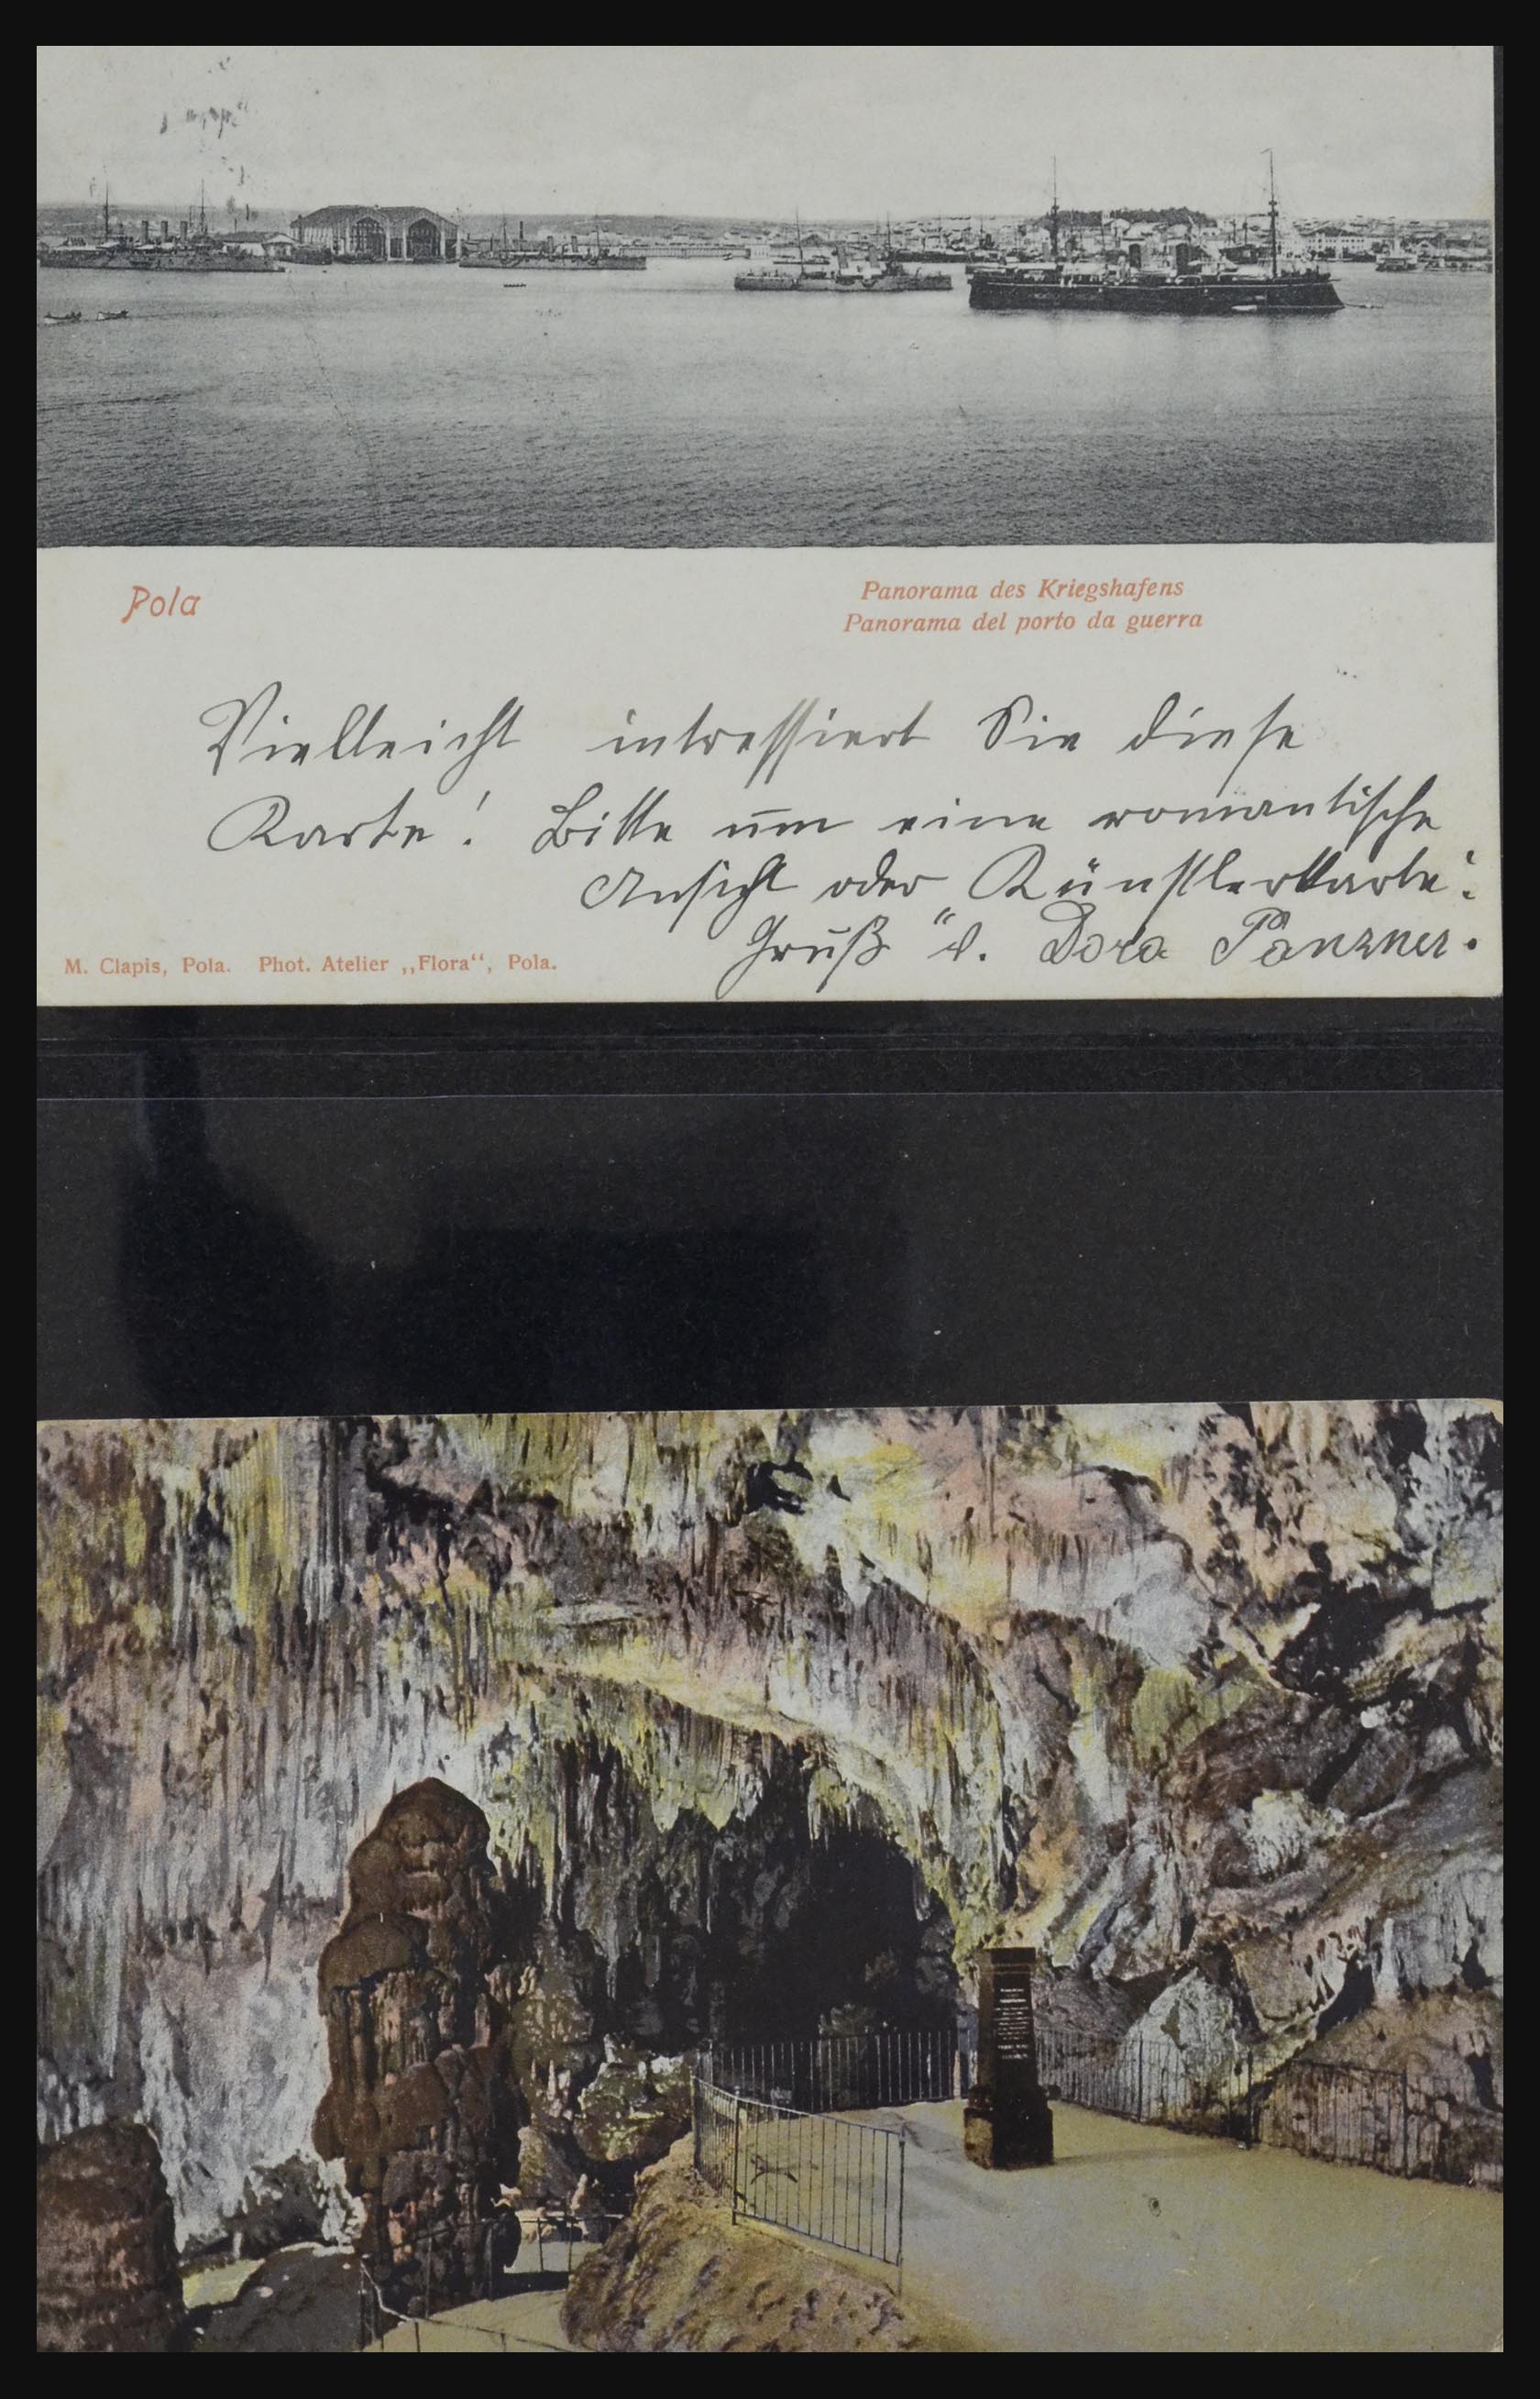 Pola
Panorama des Kriegshafens
Panorama del porto da guerra
Vielleicht intressiert Sie diese
Karte! Bitte um eine romantische
Ansicht oder Künstlerkarte.
Gruß v. Dora Panzner.
M. Clapis, Pola. Phot. Atelier „Flora“, Pola.